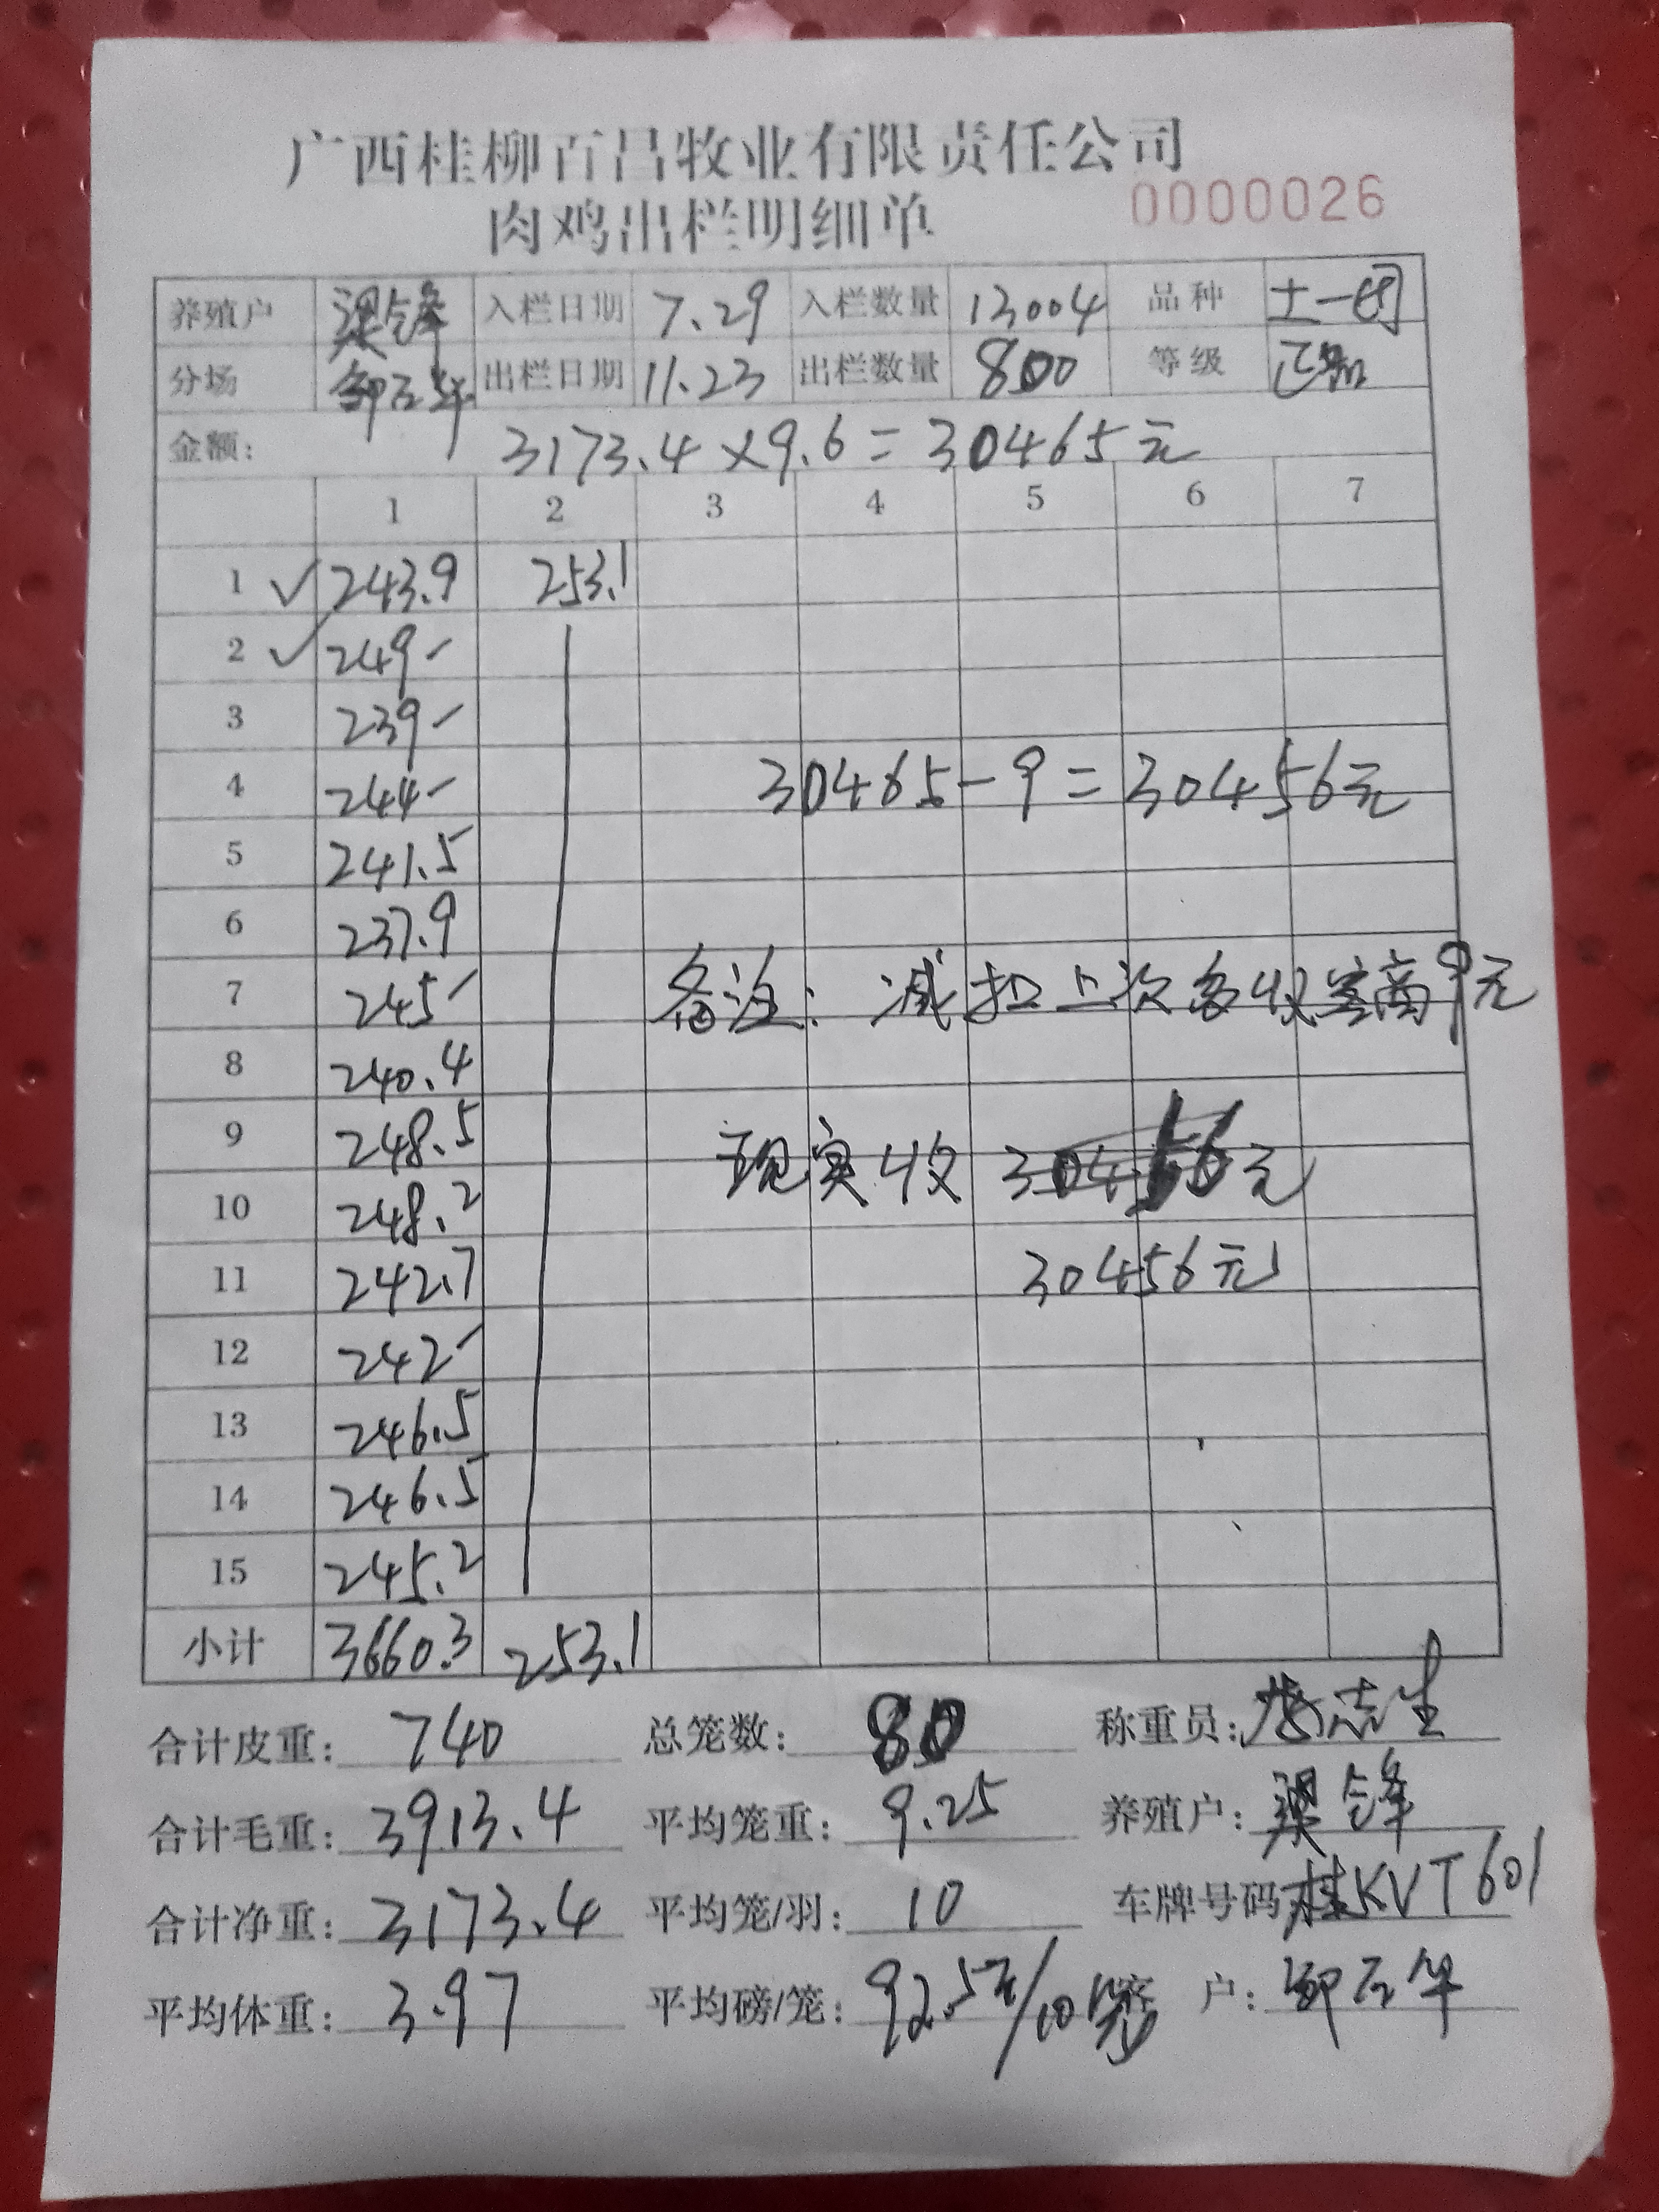 广西桂柳百昌牧业有限责任公司
肉鸡出栏明细单 0000026
养殖户 梁锋 入栏日期 7.29 入栏数量 13004 品种 土一
分场 邹 出栏日期 11.23 出栏数量 800 等级 正
金额: 3173.4×9.6=30465元
1 2 3 4 5 6 7
1 ✓ 243.9 253.1
2 ✓ 249-
3 239-
4 244- 30465-9=30456元
5 241.5
6 237.9
7 245- 备注: 减扣上次多收客商9元
8 240.4
9 248.5 现实收 30456元
10 248.2
11 242.7 30456元
12 242-
13 246.5
14 246.5
15 245.2
小计 3660.3 253.1
合计皮重: 740 总笼数: 80 称重员: 志生
合计毛重: 3913.4 平均笼重: 9.25 养殖户: 梁锋
合计净重: 3173.4 平均笼/羽: 10 车牌号码 桂KVT601
平均体重: 3.97 平均磅/笼: 92.5斤/10笼 客户: 邹